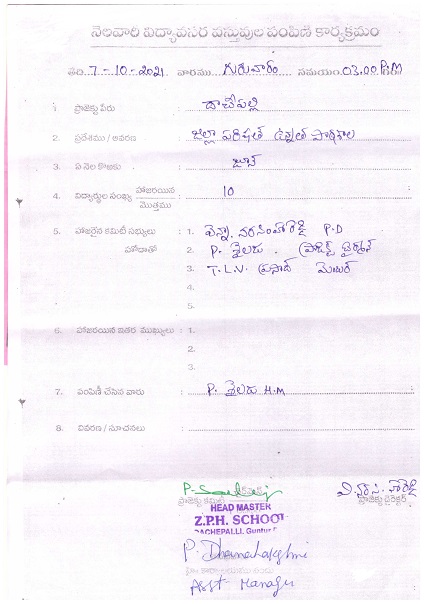 నెలవారి విద్యావసర వస్తువుల పంపిణీ కార్యక్రమం
తేది. 7-10-2021 వారము గురువారం సమయం. 03.00 P.M
1. ప్రాజెక్టు పేరు : దాచేపల్లి
2. ప్రదేశము / ఆవరణ : జిల్లా పరిషత్ ఉన్నత పాఠశాల
3. ఏ నెల కొఱకు : జూన్
4. విద్యార్థుల సంఖ్య హాజరయిన మొత్తము : 10
5. హాజరైన కమిటీ సభ్యులు హోదాతో : 1. నరసింహారెడ్డి P.D
2. P. శైలజ . ప్రాజెక్ట్ చైర్మన్
3. T.L.V. ప్రసాద్ మెంబర్
4.
5.
6. హాజరయిన ఇతర ముఖ్యులు : 1.
2.
3.
7. పంపిణీ చేసిన వారు : P. శైలజ H.M
8. వివరణ / సూచనలు :
ప్రాజెక్టు కమిటీ ప్రాజెక్టు డైరెక్టర్
HEAD MASTER
Z.P.H. SCHOOL
DACHEPALLI, Guntur
P. Dhanalakshmi
Asst Manager